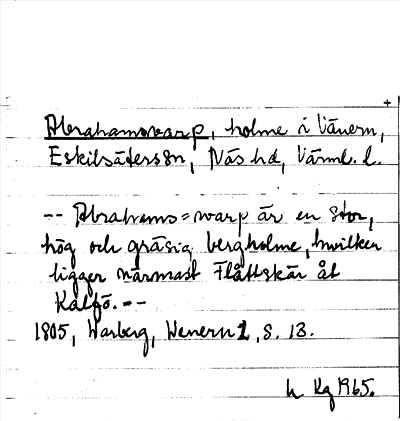 +
Abrahamswarp, holme i Vänern,
Eskilsäters sn, Näs hd, Värml. l.
-- Abrahams=warp är en stor,
hög och gräsig bergholme, hwilken
ligger närmast Flåttskär åt
Kalfö. --
1805, Warberg, Wenern 1, S. 13.
Kg 1965.